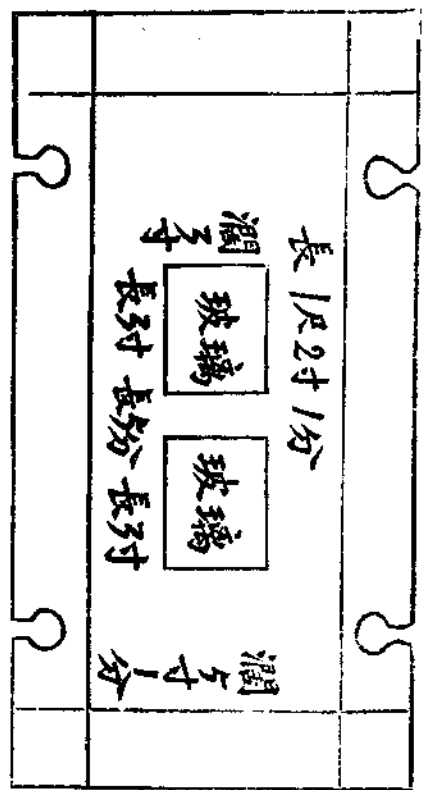 長1尺2寸1分
濶3寸
玻璃
玻璃
長3寸
長3寸
濶5寸1分